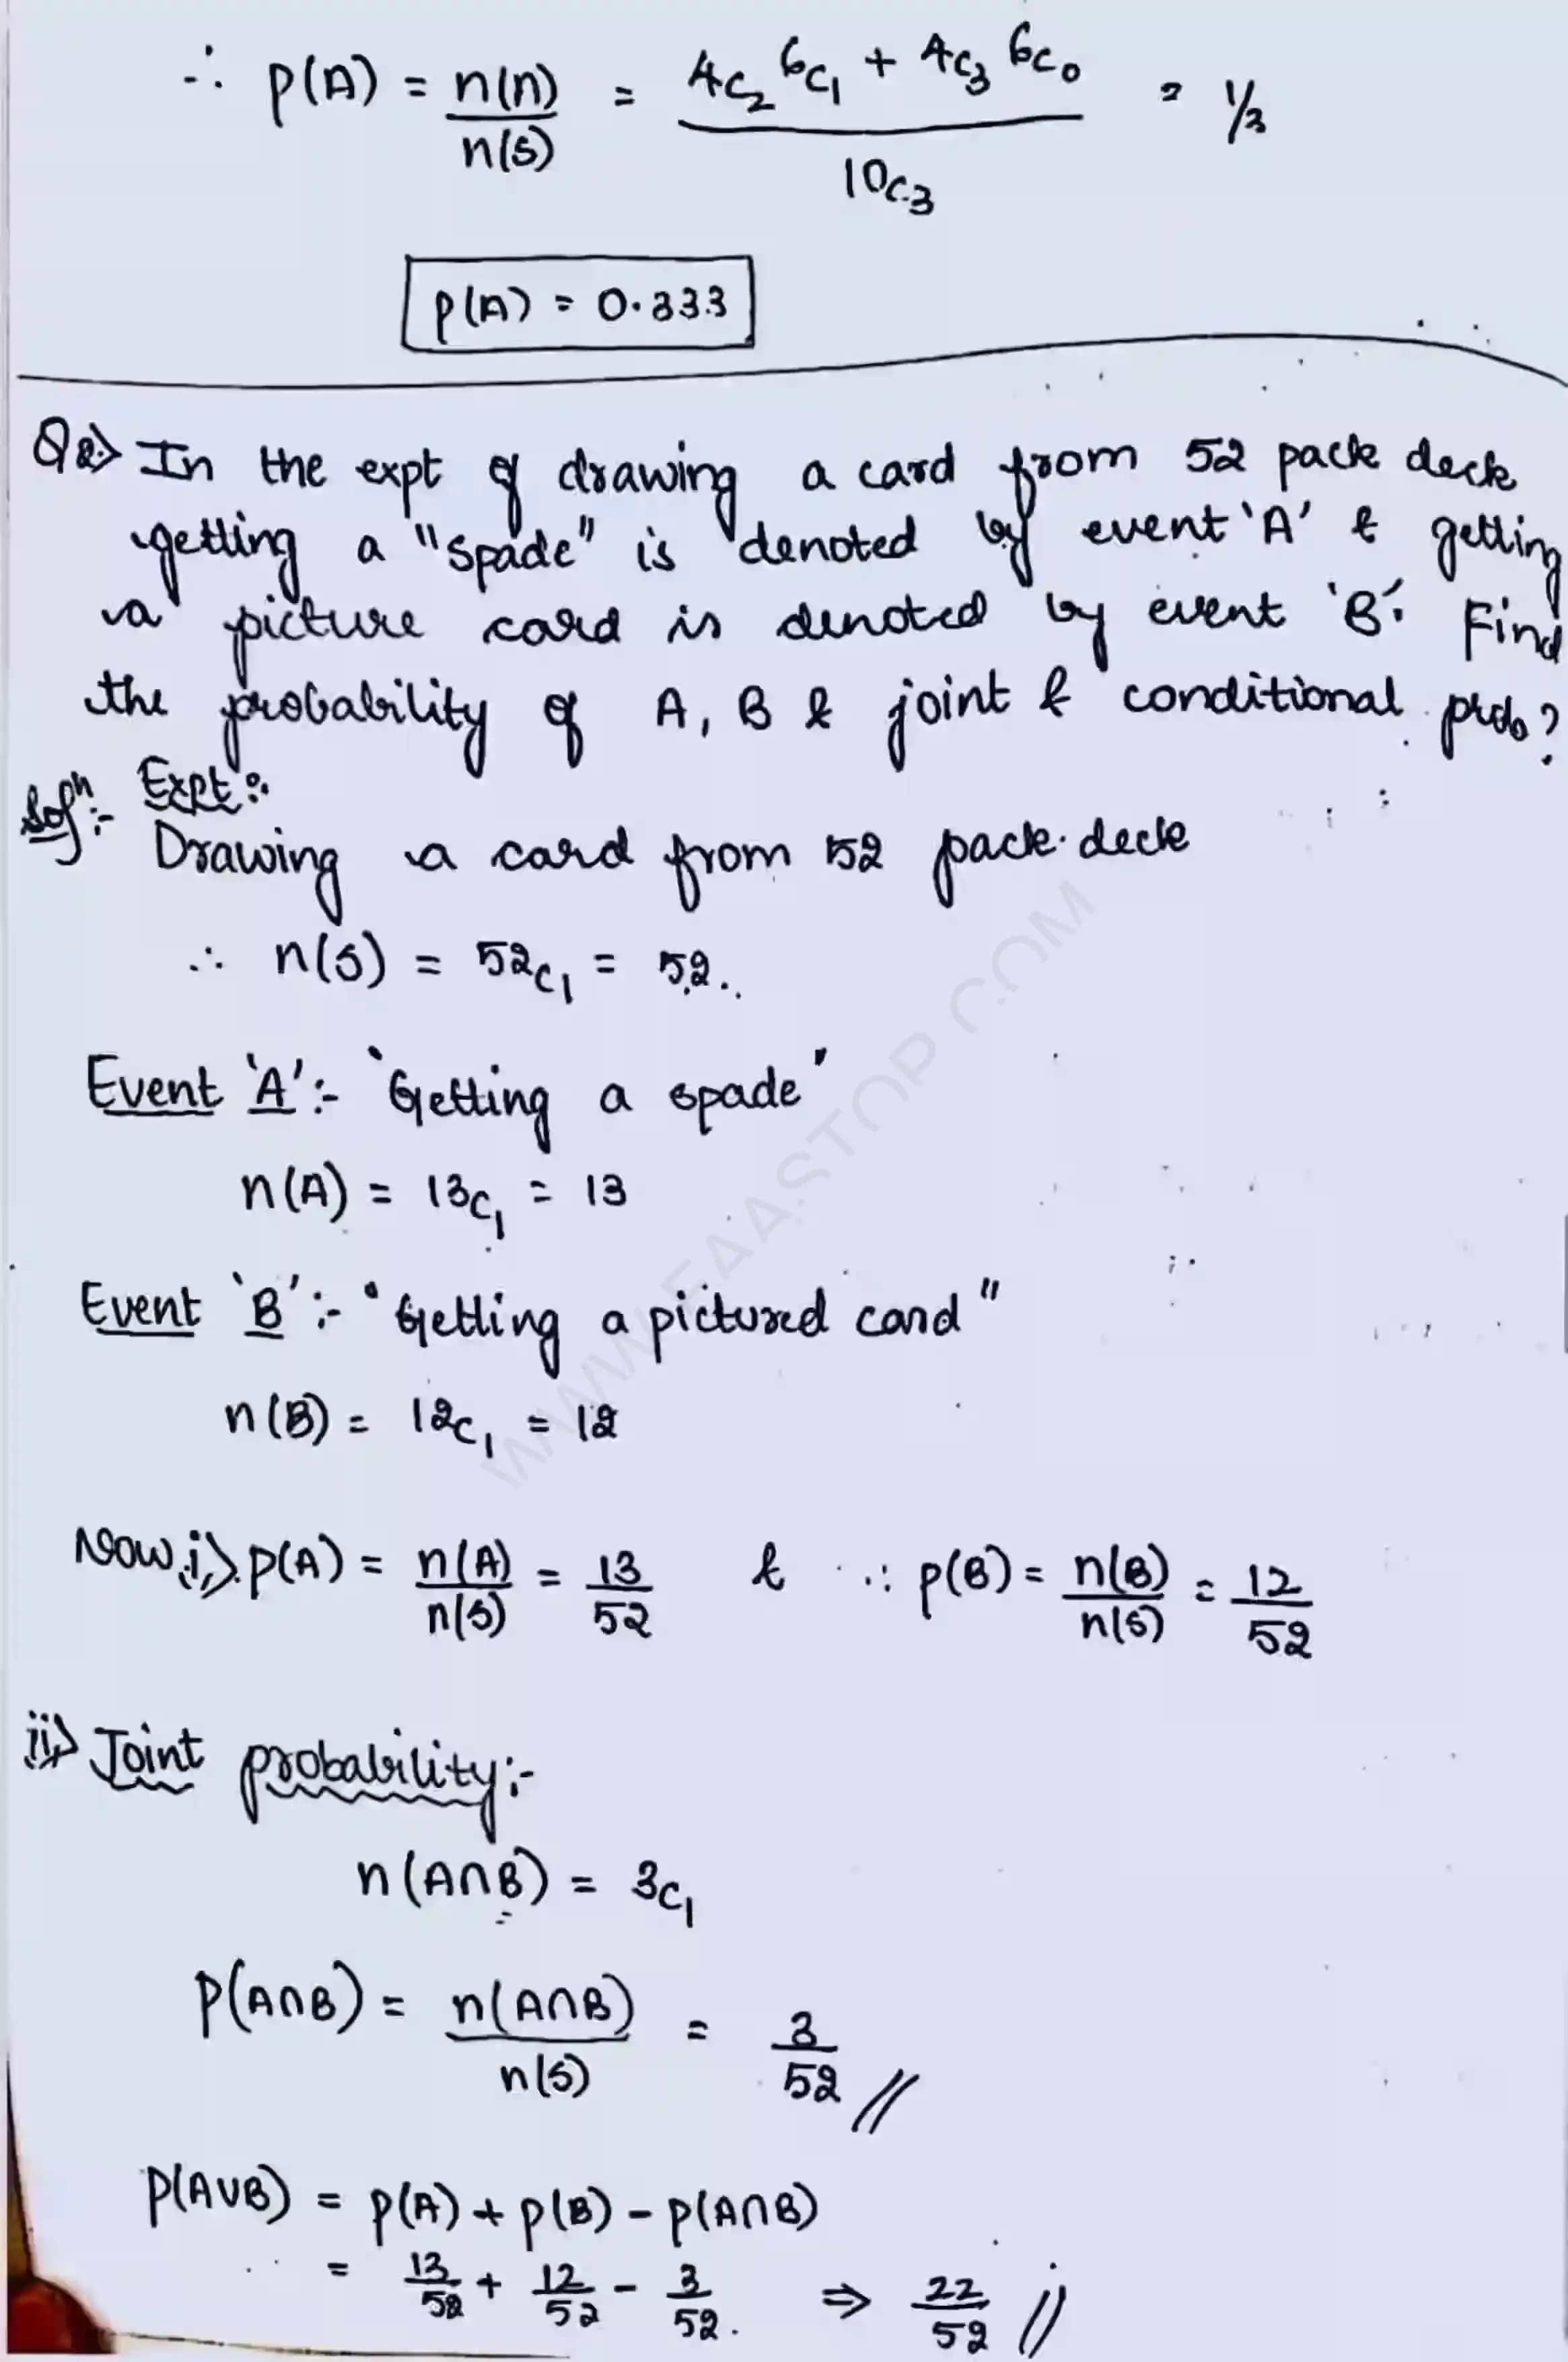 ∴ p(A) = n(n)/n(s) = (4c₂ 6c₁ + 4c₃ 6c₀)/10c₃ = 1/3
p(A) = 0.333
Q2.> In the expt of drawing a card from 52 pack deck
getting a "spade" is denoted by event 'A' & getting
a picture card is denoted by event 'B'. Find
the probability of A, B & joint & conditional prob?
Solⁿ:- Expt:
Drawing a card from 52 pack deck
∴ n(s) = 52c₁ = 52.
Event 'A':- "Getting a spade"
n(A) = 13c₁ = 13
Event 'B':- "Getting a pictured card"
n(B) = 12c₁ = 12
Now, i,> p(A) = n(A)/n(s) = 13/52 & ∴ p(B) = n(B)/n(s) = 12/52
ii> Joint probability:-
n(A∩B) = 3c₁
P(A∩B) = n(A∩B)/n(s) = 3/52 //
P(A∪B) = p(A) + p(B) - p(A∩B)
= 13/52 + 12/52 - 3/52. ⇒ 22/52 //
WWW.FAASTOP.COM